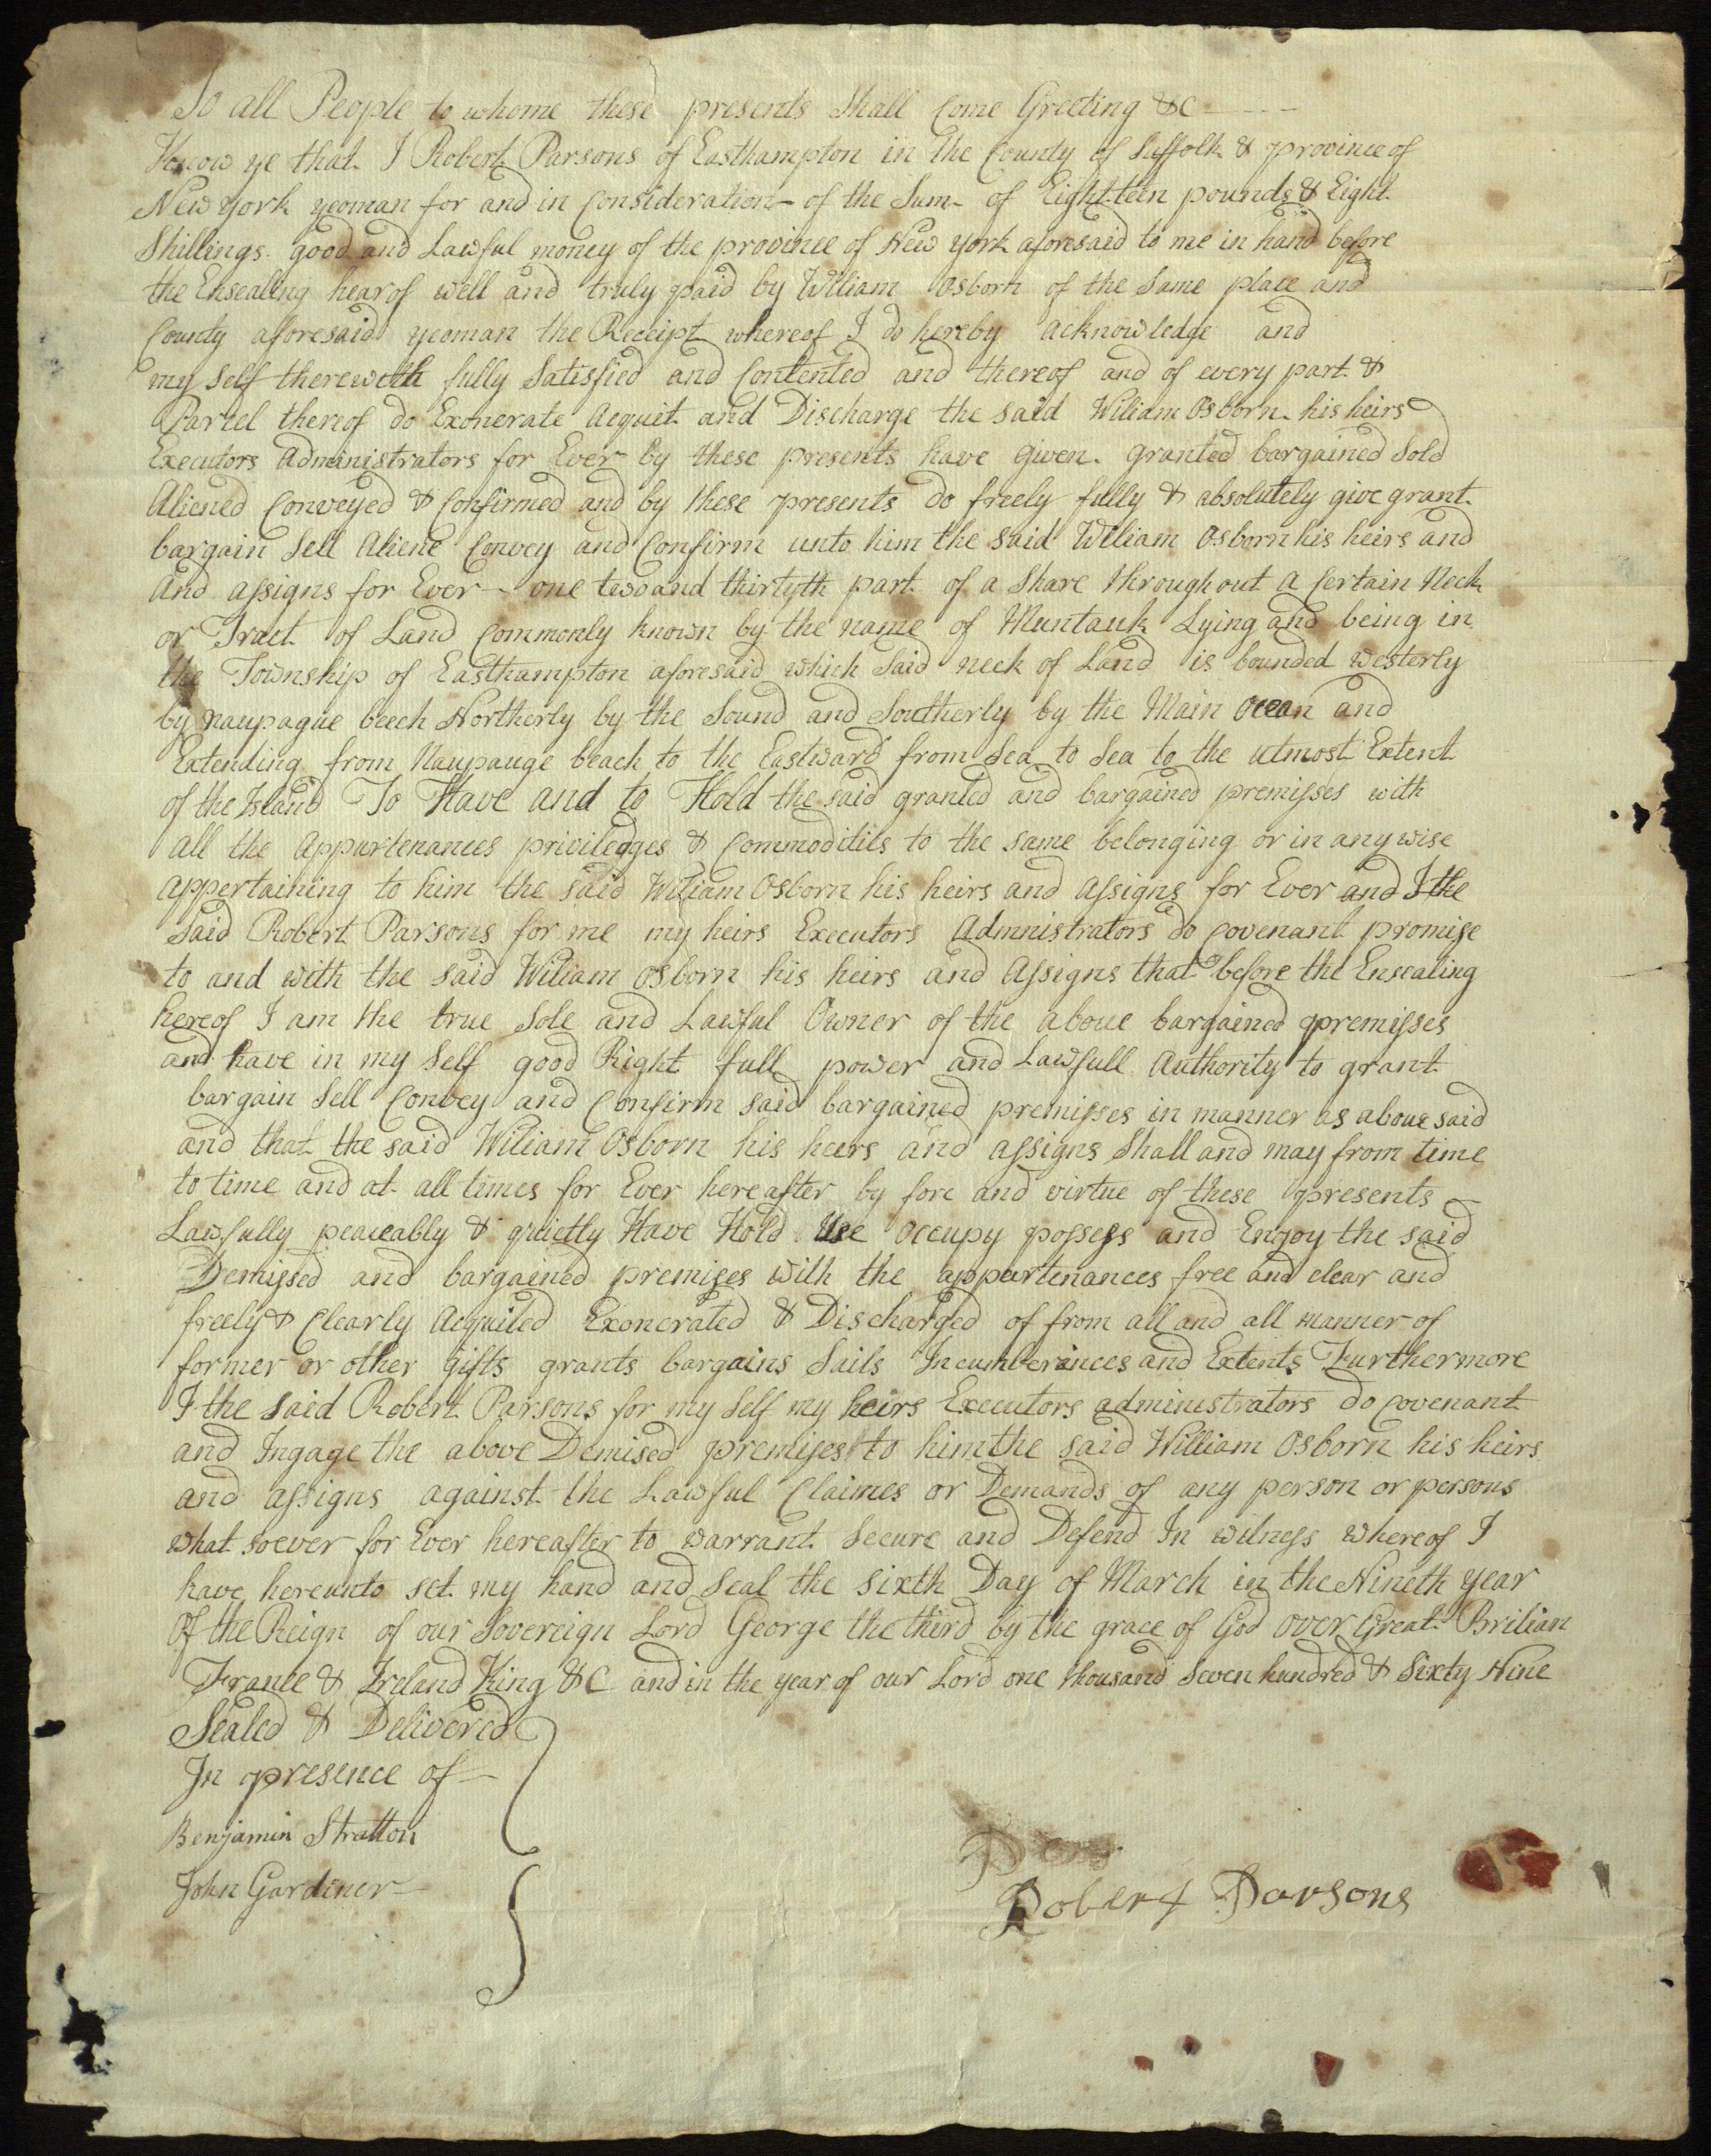 To all People to whome these presents Shall Come Greeting &C
Know ye that I Robert Parsons of Easthampton in the County of Suffolk & province of
New york yeoman for and in Consideration of the Sum of Eightteen pounds & Eight
Shillings good and Lawful money of the province of New york aforesaid to me in hand before
the Ensealing hearof well and truly paid by William Osborn of the Same place and
County afforesaid yeoman the Receipt whereof I do hereby acknowledge and
my Self therewith fully Satisfied and Contented and thereof and of every part &
Parcel thereof do Exonerate Acquit and Discharge the said Wiliam Osborn his heirs
Executors Administrators for Ever by these presents have given granted bargained Sold
Aliened Conveyed & Confirmed and by these presents do freely fully & absolutely give grant
bargain Sell Aliene Convey and Confirm unto him the said Wiliam Osborn his heirs and
And assigns for Ever one two and thirtyth part of a Share throughout a Certain Neck
or Tract of Land Commonly known by the name of Muntauk Lying and being in
the Township of Easthampton aforesaid which Said neck of Land is bounded westerly
by naupague beech Northerly by the Sound and Southerly by the Main Ocean and
Extending from Naupauge beach to the Eastward from Sea to Sea to the utmost Extent
of the Island To Have and to Hold the said granted and bargained premisses with
all the Appurtenances priviledges & Commodities to the same belonging or in any wise
appertaining to him the said Wiliam Osborn his heirs and Assigns for Ever and I the
Said Robert Parsons for me my heirs Executors Admnistrators do Covenant promise
to and with the said Wiliam Osborn his heirs and Assigns that before the Ensealing
hereof I am the true Sole and Lawful Owner of the above bargained premisses
and have in my Self good Right full power and Lawfull Authority to grant
bargain Sell Convey and Confirm said bargained premisses in manner as above said
and that the said Wiliam Osborn his heers and assigns Shall and may from time
to time and at all times for Ever hereafter by fore and virtue of these presents
Lawfully peaceably & quietly Have Hold Use Occupy possess and Enjoy the said
Demissed and bargained premises with the appurtenances free and clear and
freely & Clearly Acquited Exonerated & Discharged of from all and all manner of
former or other gifts grants bargains Sails Incumberances and Extents Furthermore
I the said Robert Parsons for my Self my heirs Executors administrators do Covenant
and Ingage the above Demised premises to him the said William Osborn his heirs
and assigns against the Lawful Claimes or Demands of any person or persons
what soever for Ever hereafter to warrant Secure and Defend In witness whereof I
have hereunto set my hand and Seal the sixth Day of March in the Nineth year
Of the Reign of our Sovereign Lord George the third by the grace of God over Great Britian
France & Ireland King &C and in the year of our Lord one thousand Seven hundred & Sixty Nine
Sealed & Delivered
In presence of
Benjamin Stratton
John Gardiner
Robert Parsons